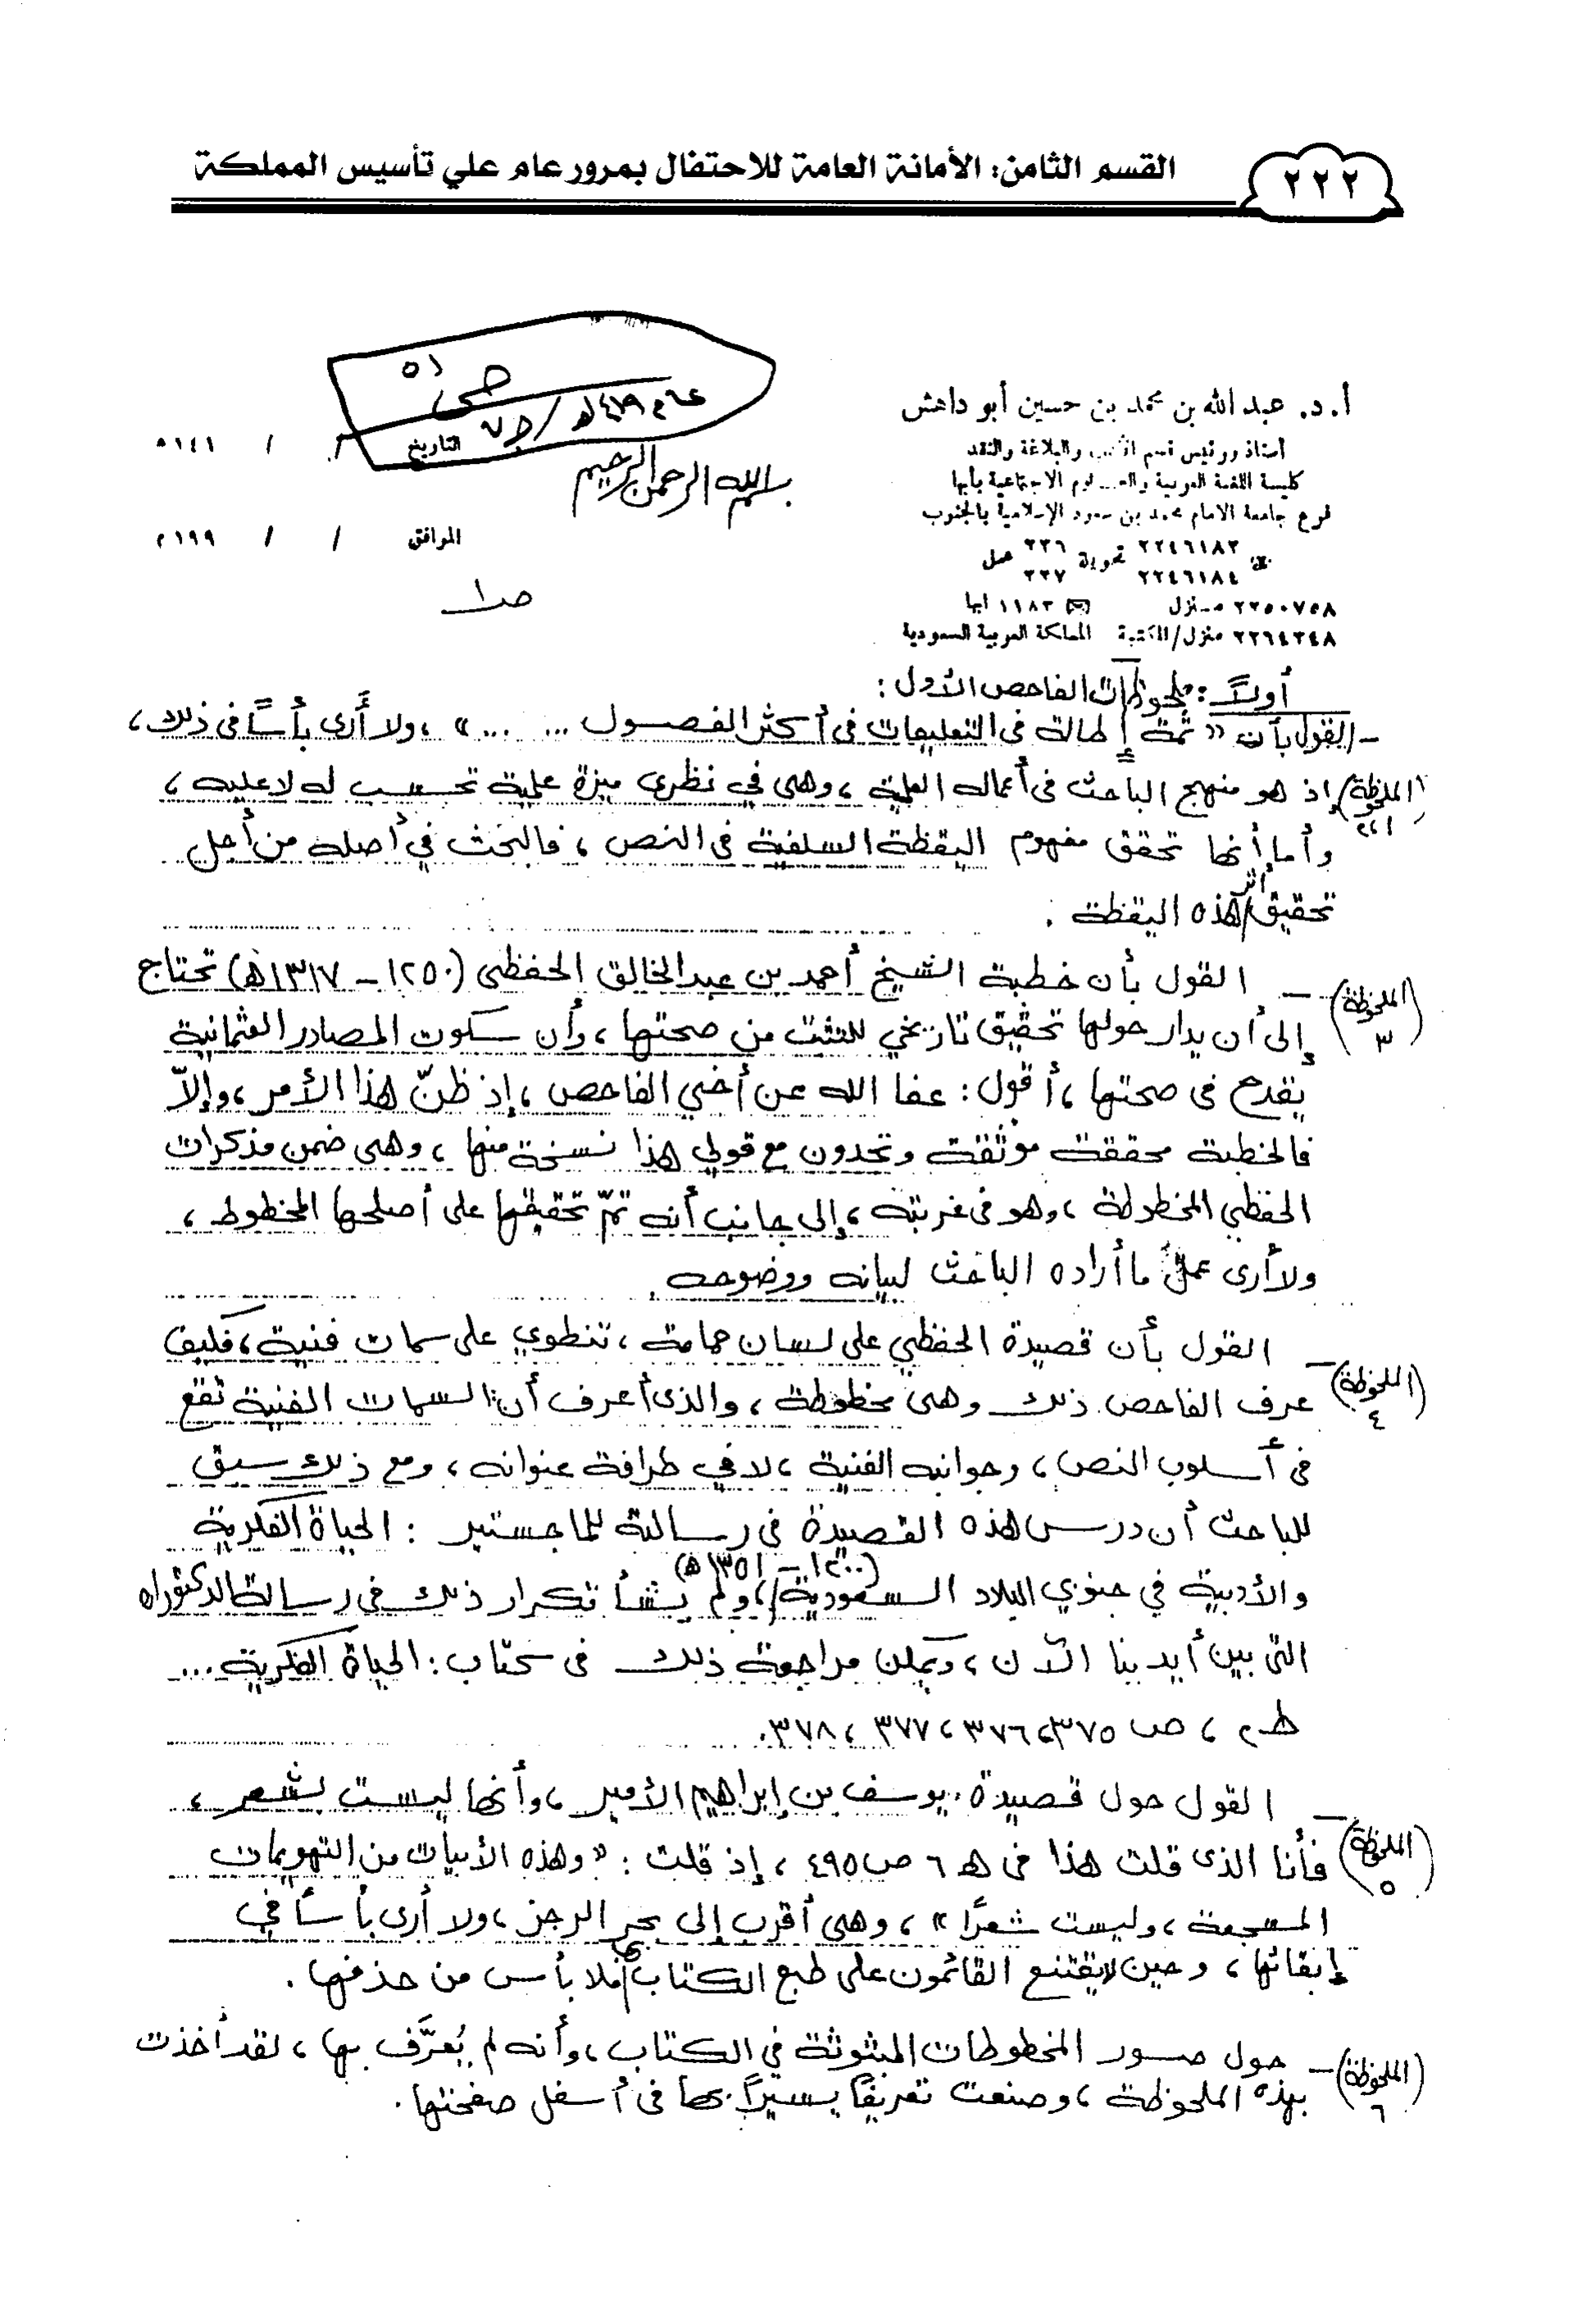 ٢٢٢
القسم الثامن: الأمانة العامة للاحتفال بمرور عام علي تأسيس المملكة
أ.د. عبد الله بن محمد بن حسين أبو داهش
أستاذ ورئيس قسم الأدب والبلاغة والنقد
كلية اللغة العربية والعلوم الاجتماعية بأبها
فرع جامعة الامام محمد بن سعود الإسلامية بالجنوب
٢٢٤٦١٨٣ تحويلة ٢٢٦ عمل
٢٢٤٦١٨٤ ٢٢٧
٢٢٥٠٧٥٨ منزل ١١٨٣ ابها
٢٢٦٤٣٤٨ منزل/المكتبة المملكة العربية السعودية
ص ٥١
٤١٩هـ
بسم الله الرحمن الرحيم
التاريخ / / ١٤١ هـ
الموافق / / ١٩٩ م
ص١
أولاً: ملحوظات الفاحص الأول:
- القول بأن «ثمة إطالة في التعليقات في أكثر الفصول ... ...»، ولا أرى بأسًا في ذلك،
(الملحوظة ١، ٢) إذ هو منهج الباحث في أعماله العلمية، وهي في نظري ميزة علمية تحسب له لا عليه،
وأما أنها تحقق مفهوم اليقظة السلفية في النص، فالبحث في أصله من أجل
تحقيق أثر هذه اليقظة.
(الملحوظة ٣) - القول بأن خطبة الشيخ أحمد بن عبدالخالق الحفظي (١٢٥٠ - ١٣١٧هـ) تحتاج
إلى أن يدار حولها تحقيق تاريخي للتثبت من صحتها، وأن سكوت المصادر العثمانية
يقدح في صحتها، أقول: عفا الله عن أخي الفاحص، إذ ظنّ هذا الأمر، وإلاّ
فالخطبة محققة موثقة وتجدون مع قولي هذا نسخة منها، وهي ضمن مذكرات
الحفظي المخطوطة، وهو في غربته، إلى جانب أنه تمّ تحقيقها على أصلها المخطوط،
ولا أرى ما أراده الباحث لبيانه ووضوحه.
(الملحوظة ٤) - القول بأن قصيدة الحفظي على لسان حمامة، تنطوي على سمات فنية، فكيف
عرف الفاحص ذلك وهي مخطوطة، والذي أعرف أن السمات الفنية تقع
في أسلوب النص، وجوانبه الفنية، لا في طرافة عنوانه، ومع ذلك سبق
للباحث أن درس هذه القصيدة في رسالته للماجستير: الحياة الفكرية
والأدبية في جنوبي البلاد السعودية (١٢٠٠ - ١٣٥١هـ)، ولم يشأ تكرار ذلك في رسالة الدكتوراه
التي بين أيدينا الآن، ويمكن مراجعة ذلك في كتاب: الحياة الفكرية...
ط٢، ص ٣٧٥، ٣٧٦، ٣٧٧، ٣٧٨.
(الملحوظة ٥) - القول حول قصيدة يوسف بن إبراهيم الأمير، وأنها ليست بشعر،
فأنا الذي قلت هذا في هـ ٦ ص ٤٩٥، إذ قلت: «وهذه الأبيات من التهويمات
المسجعة، وليست شعرًا»، وهي أقرب إلى بحر الرجز، ولا أرى بأسًا في
إبقائها، وحين لا يقتنع القائمون على طبع الكتاب فلا بأس من حذفها.
(الملحوظة ٦) - حول صور المخطوطات المبثوثة في الكتاب، وأنه لم يُعرَّف بها، لقد أخذت
بهذه الملحوظة، وصنعت تعريفًا يسيرًا بها في أسفل صفحتها.